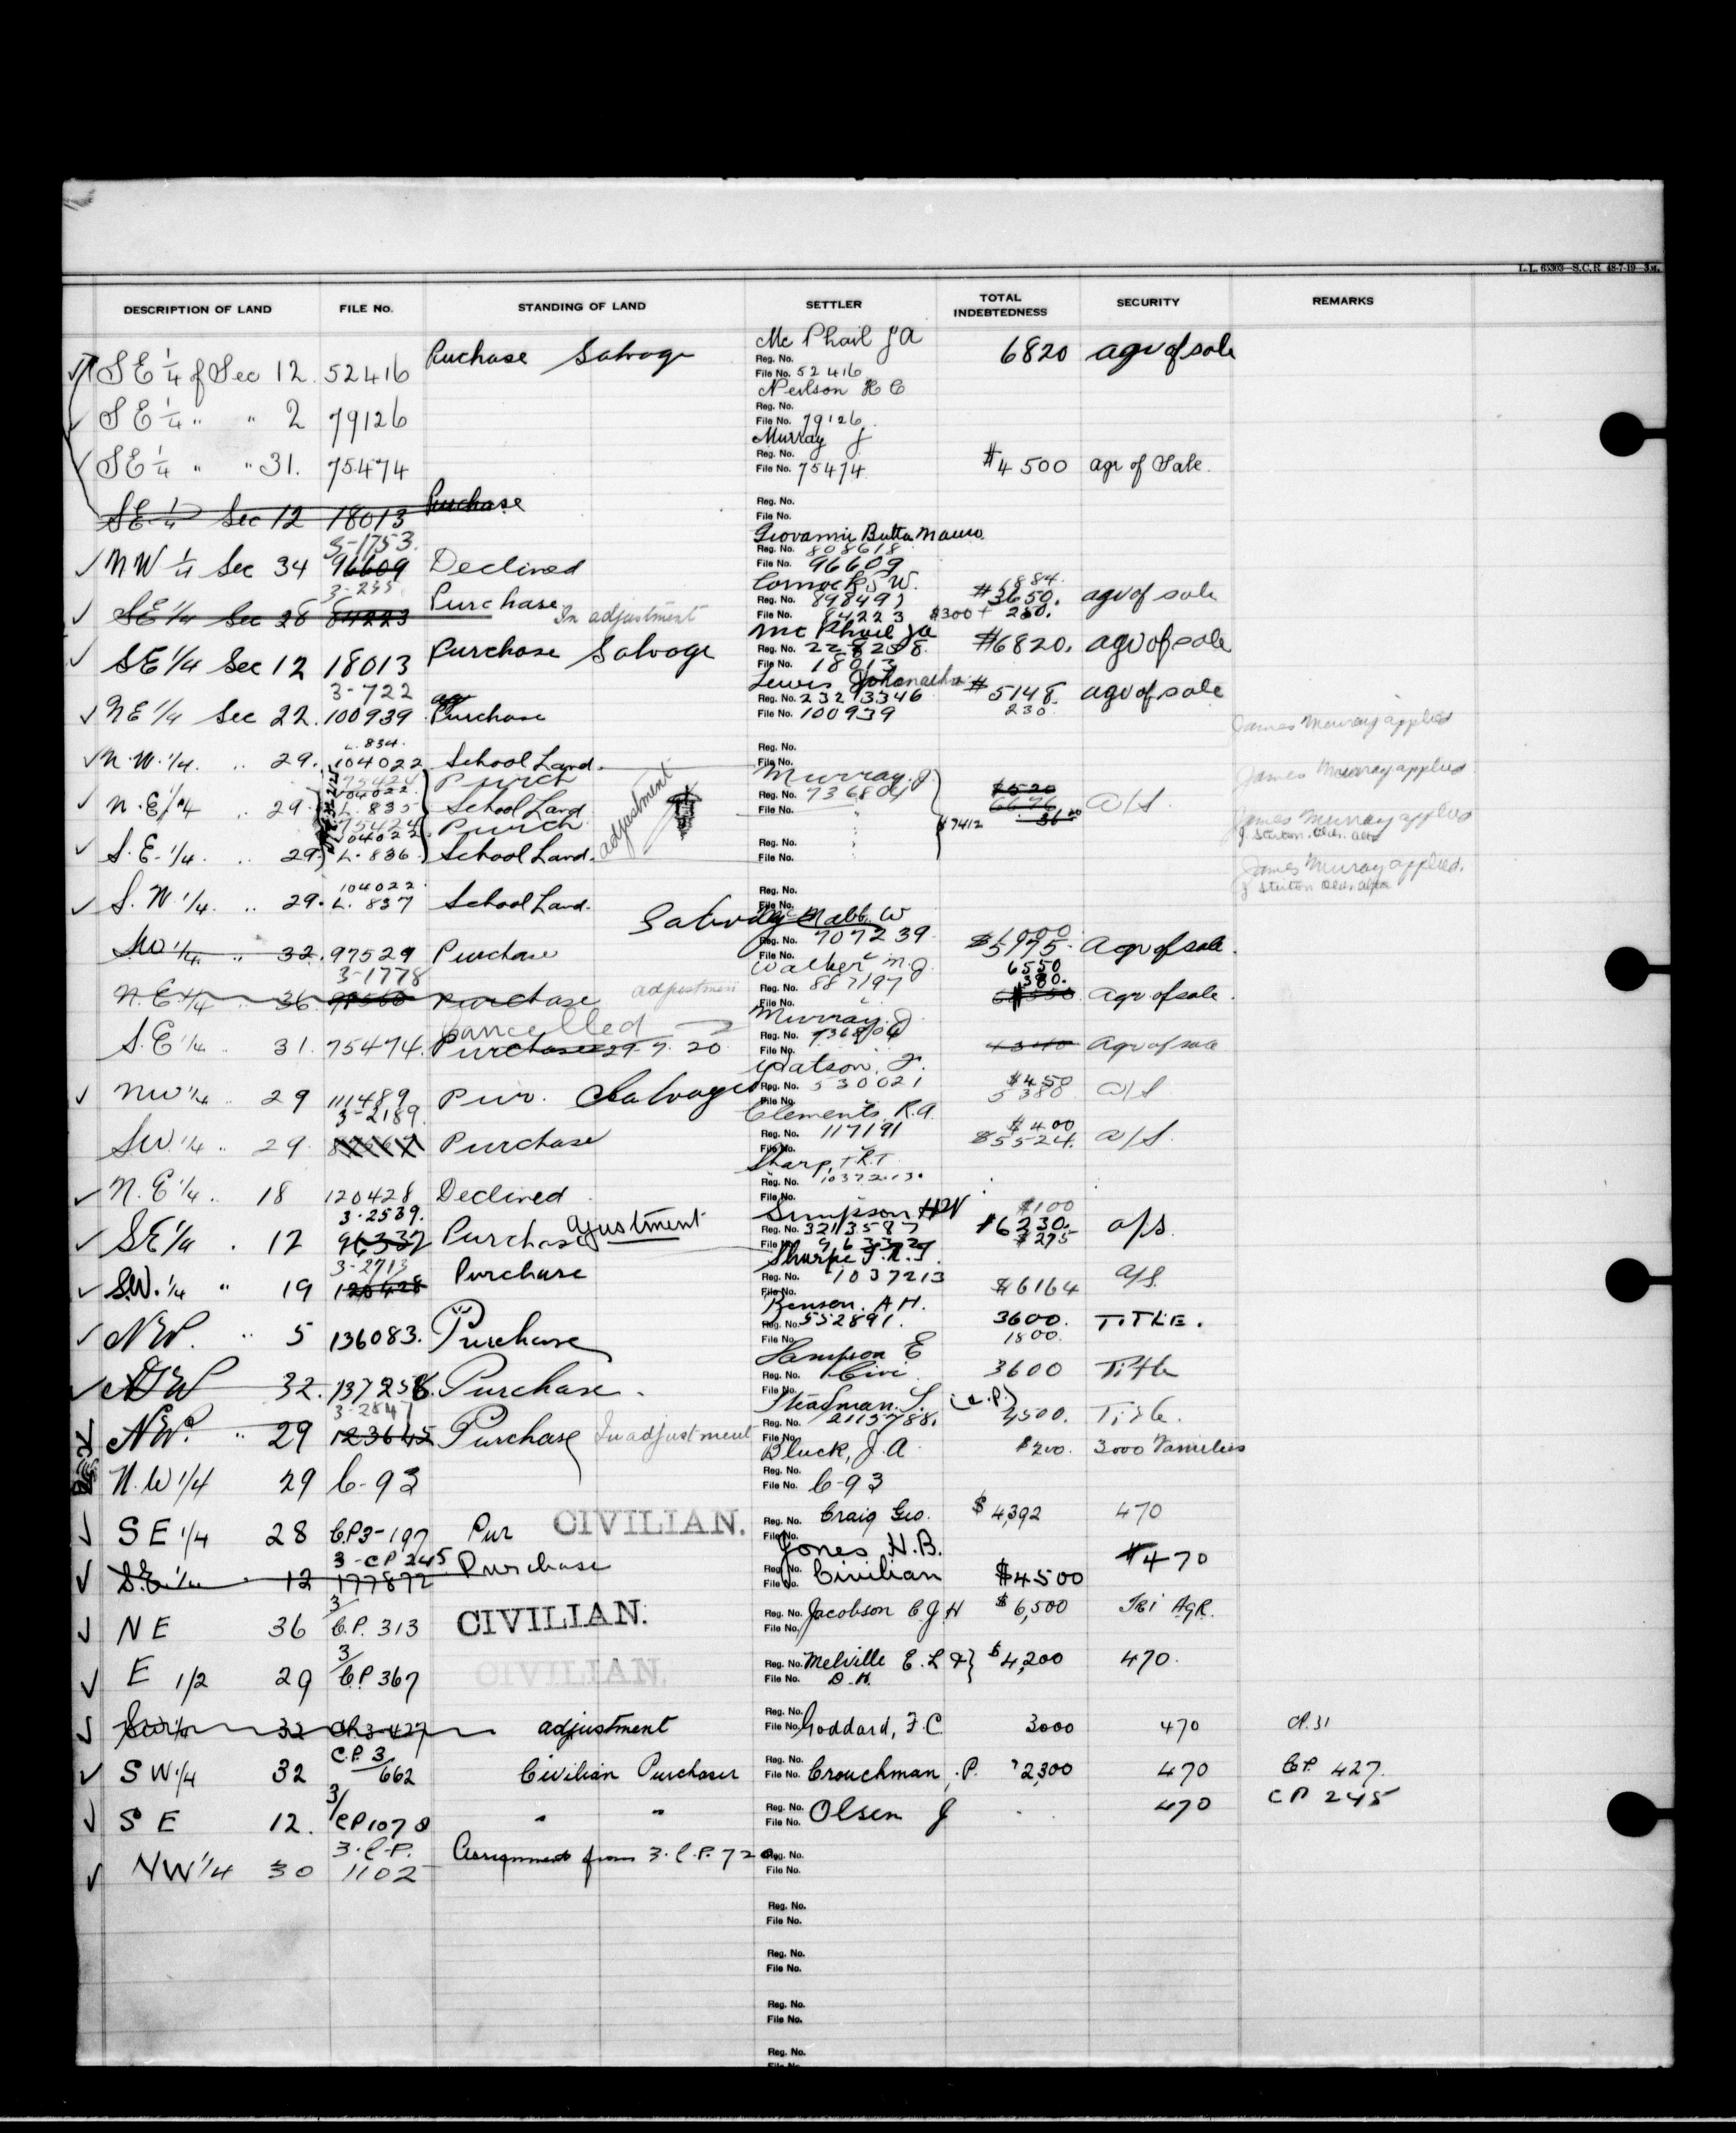 L.L. 65303—S.C.R. 48-7-19—3M.
DESCRIPTION OF LAND FILE No. STANDING OF LAND SETTLER TOTAL INDEBTEDNESS SECURITY REMARKS
SE 1/4 of Sec 12. 52416 Puchase Salvage Mc Phail J A 6820 agr of sale
Reg. No.
File No. 52416
SE 1/4 " " 2 79126 Neilson H C
Reg. No.
File No. 79126
SE 1/4 " " 31. 75474 Murray J $4500 agr of Sale.
Reg. No.
File No. 75474
SE 1/4 Sec 12 18013 Purchase
Reg. No.
File No.
3-1753.
NW 1/4 Sec 34 96609 Declined Giovanni Butta Mauro
Reg. No. 808618
File No. 96609
3-235
SE 1/4 Sec 28 84223 Purchase In adjustment Cornock S W. 1884. $3650. $300 + 250. agr of sale
Reg. No. 898497
File No. 84223
SE 1/4 Sec 12 18013 Purchase Salvage Mc Phail JA $6820. agr of sale
Reg. No.
File No. 18013
3-722
NE 1/4 Sec 22. 100939 Purchase Lewis $5148 230. agr of sale
Reg. No. 23213346
File No. 100939
L. 834.
N.W. 1/4. " 29. 104022 School Land. James Murray applied
Reg. No.
File No.
75424 Purch
104022
N.E 1/4 " 29. L. 835 School Land adjustment Murray. J. $6520 $7412 36.00 a/s. James Murray applied
Reg. No. 736804
File No. "
75424 Purch
104022
S.E. 1/4. " 29. L. 836. School Land. James Murray applied
Reg. No. "
File No. "
J. Stirton. Olds. Alta
104022.
S.W. 1/4. " 29. L. 837 School Land. James Murray applied.
Reg. No.
File No.
J Stirton Olds Alta
SW 1/4 " 32. 97529 Purchase Salvage McNabb. W $1000 $5775. Agr of sale.
Reg. No. 707239
File No.
3-1778
N.E. 1/4 36. Purchase adjustment Walker M.J. 6550 380. Agr of sale.
Reg. No. 887197
File No.
S.E 1/4 " 31. 75474. Cancelled Purchase 29.7.20 Murray. J. 4340 Agr of sale
Reg. No. 736804
File No.
NW 1/4 " 29 111489 Pur. Salvage Watson. F. $450 5380 a/s
Reg. No. 530021
File No.
3-2189.
SW. 1/4 " 29. Purchase Clements R.A. $400 $5524. a/s.
Reg. No. 117191
File No.
N.E 1/4 " 18 120428 Declined Sharp, F.R.T
Reg. No. 1037213.
File No.
3.2539.
SE 1/4 " 12 96332 Purchase Ajustment Simpson HW $100 $6230. $275 a/s.
Reg. No. 3213587
File No. 96332
3-2713
S.W. 1/4 " 19 120428 Purchase Sharpe F.R.T. $6164 a/s.
Reg. No. 1037213
File No.
NW. " 5 136083. Purchase Benson. A H. 3600. 1800. TITLE.
Reg. No. 552891.
File No.
NW 32. 137256. Purchase. Sampson E 3600 Title
Reg. No. Civi
File No.
3-2847
NW. " 29 123645 Purchase In adjustment Steadman. S. (C.P.) 4500. Title.
Reg. No. 2115788.
File No.
N.W 1/4 29 C-93 Bluck, J. A. $200. 3000 Families
Reg. No.
File No. C-93
SE 1/4 28 CP3-197 Pur CIVILIAN. Craig Geo. $4,392 470
Reg. No.
File No.
3-CP 245
S.E. 1/4 12 177872 Purchase Jones H.B. $4500 #470
Reg. No. Civilian
File No.
NE 36 3/C.P. 313 CIVILIAN. Jacobson C J H $6,500 Tri AgR.
Reg. No.
File No.
E 1/2 29 3/C.P 367 CIVILIAN. Melville E. L & D.H. $4,200 470.
Reg. No.
File No.
SW 1/4 32 CP.3-427 adjustment Goddard, F.C. 3000 470 CP.31
Reg. No.
File No.
SW 1/4 32 C.P. 3/662 Civilian Purchaser Crouchman .P. 2,300 470 C.P. 427.
Reg. No.
File No.
SE 12. 3/CP 1078 " " Olsen J 470 CP 245
Reg. No.
File No.
NW 1/4 30 3.C.P. 1102 Assignment from 3.C.P. 720.
Reg. No.
File No.
Reg. No.
File No.
Reg. No.
File No.
Reg. No.
File No.
Reg. No.
File No.